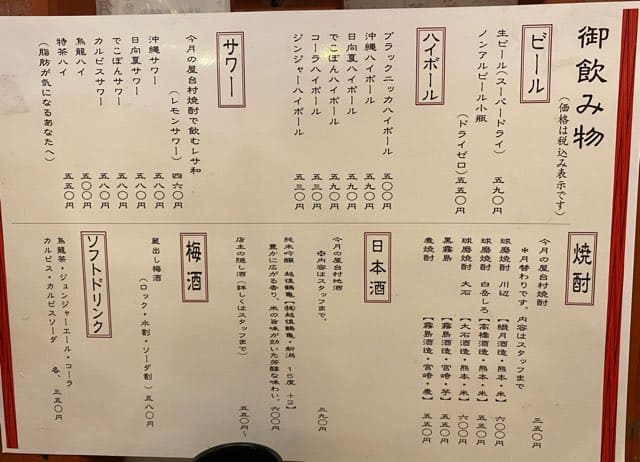 御飲み物
(価格は税込み表示です)
ビール
生ビール(スーパードライ) 五九〇円
ノンアルビール小瓶
(ドライゼロ)五五〇円
ハイボール
ブラックニッカハイボール 五〇〇円
沖縄ハイボール 五九〇円
日向夏ハイボール 五九〇円
でこぽんハイボール 五九〇円
コーラハイボール 五三〇円
ジンジャーハイボール 五三〇円
サワー
今月の屋台村焼酎で飲むレサ和
(レモンサワー) 四六〇円
沖縄サワー 五八〇円
日向夏サワー 五八〇円
でこぽんサワー 五八〇円
カルピスサワー 五八〇円
烏龍ハイ 五〇〇円
特茶ハイ 五五〇円
(脂肪が気になるあなたへ)
焼酎
今月の屋台村焼酎 三五〇円
*月替わりです。内容はスタッフまで
球磨焼酎 川辺 【繊月酒造・熊本・米】 六〇〇円
球磨焼酎 白岳しろ 【高橋酒造・熊本・米】 五五〇円
球磨焼酎 大石 【大石酒造・熊本・米】 六〇〇円
黒霧島 【霧島酒造・宮崎・芋】 五五〇円
麦焼酎 【霧島酒造・宮崎・麦】 五五〇円
日本酒
今月の屋台村地酒 三九〇円
*内容はスタッフまで。
純米吟醸 越後鶴亀【㈱越後鶴亀・新潟 15度 +2】
豊かに広がる香り、米の旨味が効いた芳醇な味わい。 六〇〇円
店主の隠し酒(詳しくはスタッフまで) 五五〇円~
梅酒
蔵出し梅酒
(ロック・水割・ソーダ割) 五八〇円
ソフトドリンク
烏龍茶・ジンジャーエール・コーラ
カルピス・カルピスソーダ 各、三五〇円